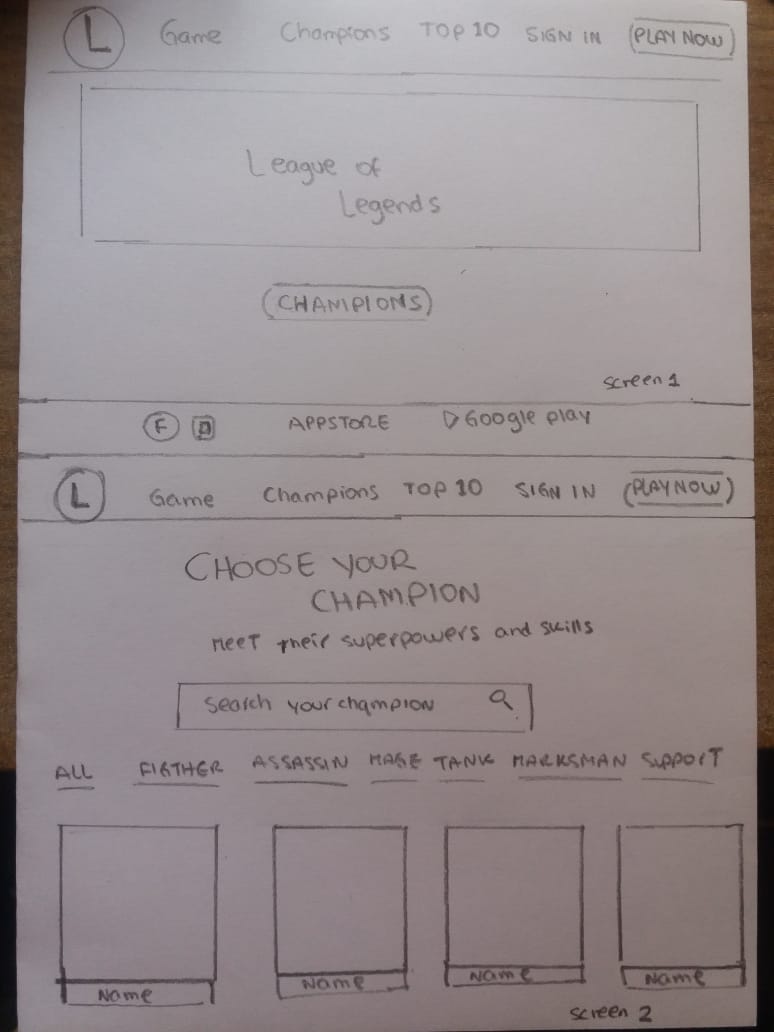 L Game Champions TOP 10 SIGN IN PLAY NOW
League of
Legends
CHAMPIONS
screen 1
F APPSTORE Google play
L Game Champions TOP 10 SIGN IN PLAY NOW
CHOOSE YOUR
CHAMPION
MEET their superpowers and skills
Search your champion
ALL FIGTHER ASSASSIN MAGE TANK MARKSMAN SUPPORT
Name Name Name Name
screen 2